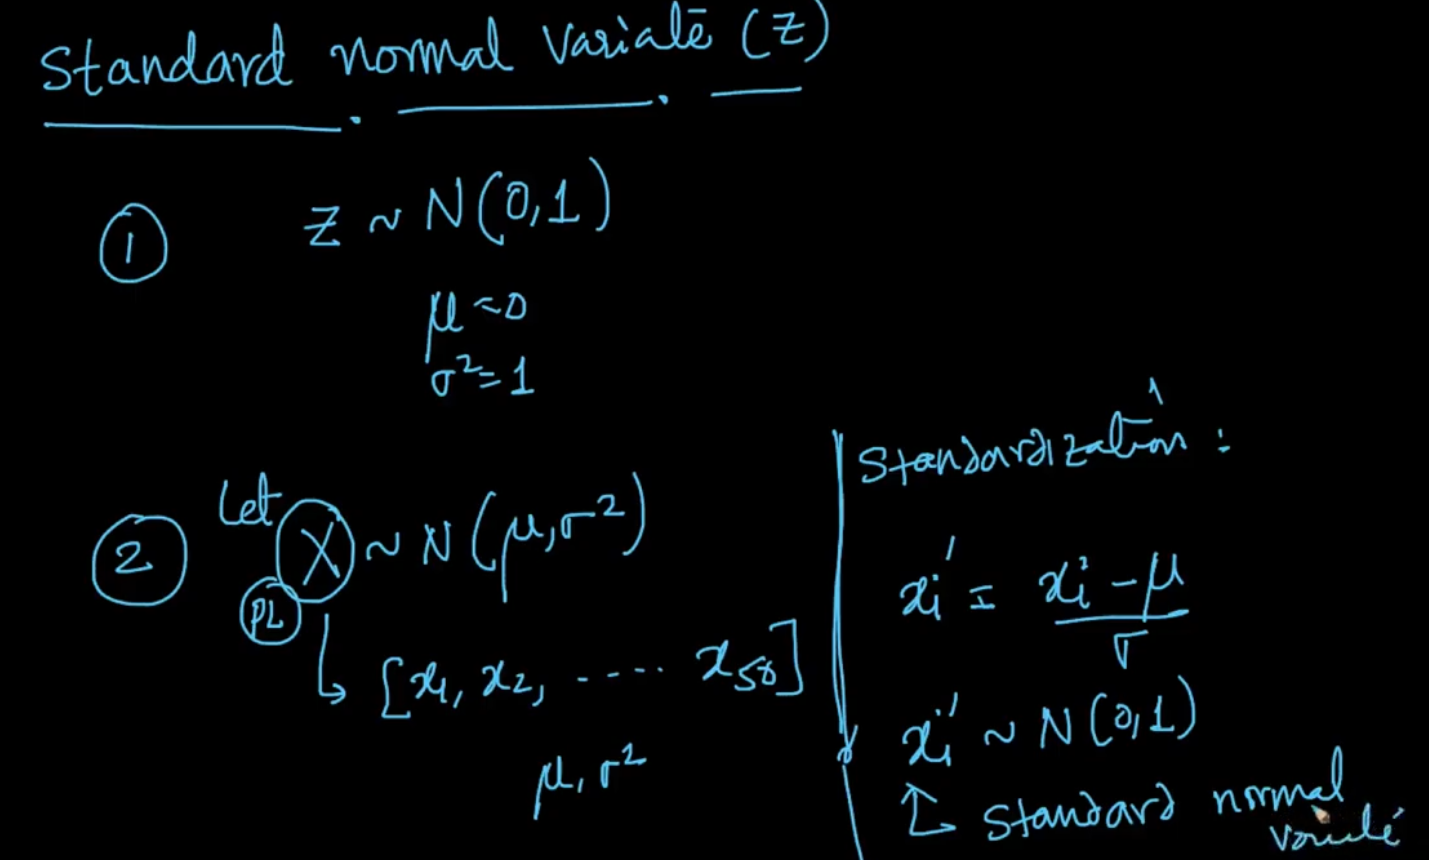 Standard normal variate (z)
1 z ~ N(0,1)
μ = 0
σ² = 1
2 Let X ~ N(μ,σ²)
PL
[x₁, x₂, ---- x₅₀]
μ, σ²
Standardization :
xᵢ' = xᵢ - μ / σ
xᵢ' ~ N(0,1)
Standard normal
variate